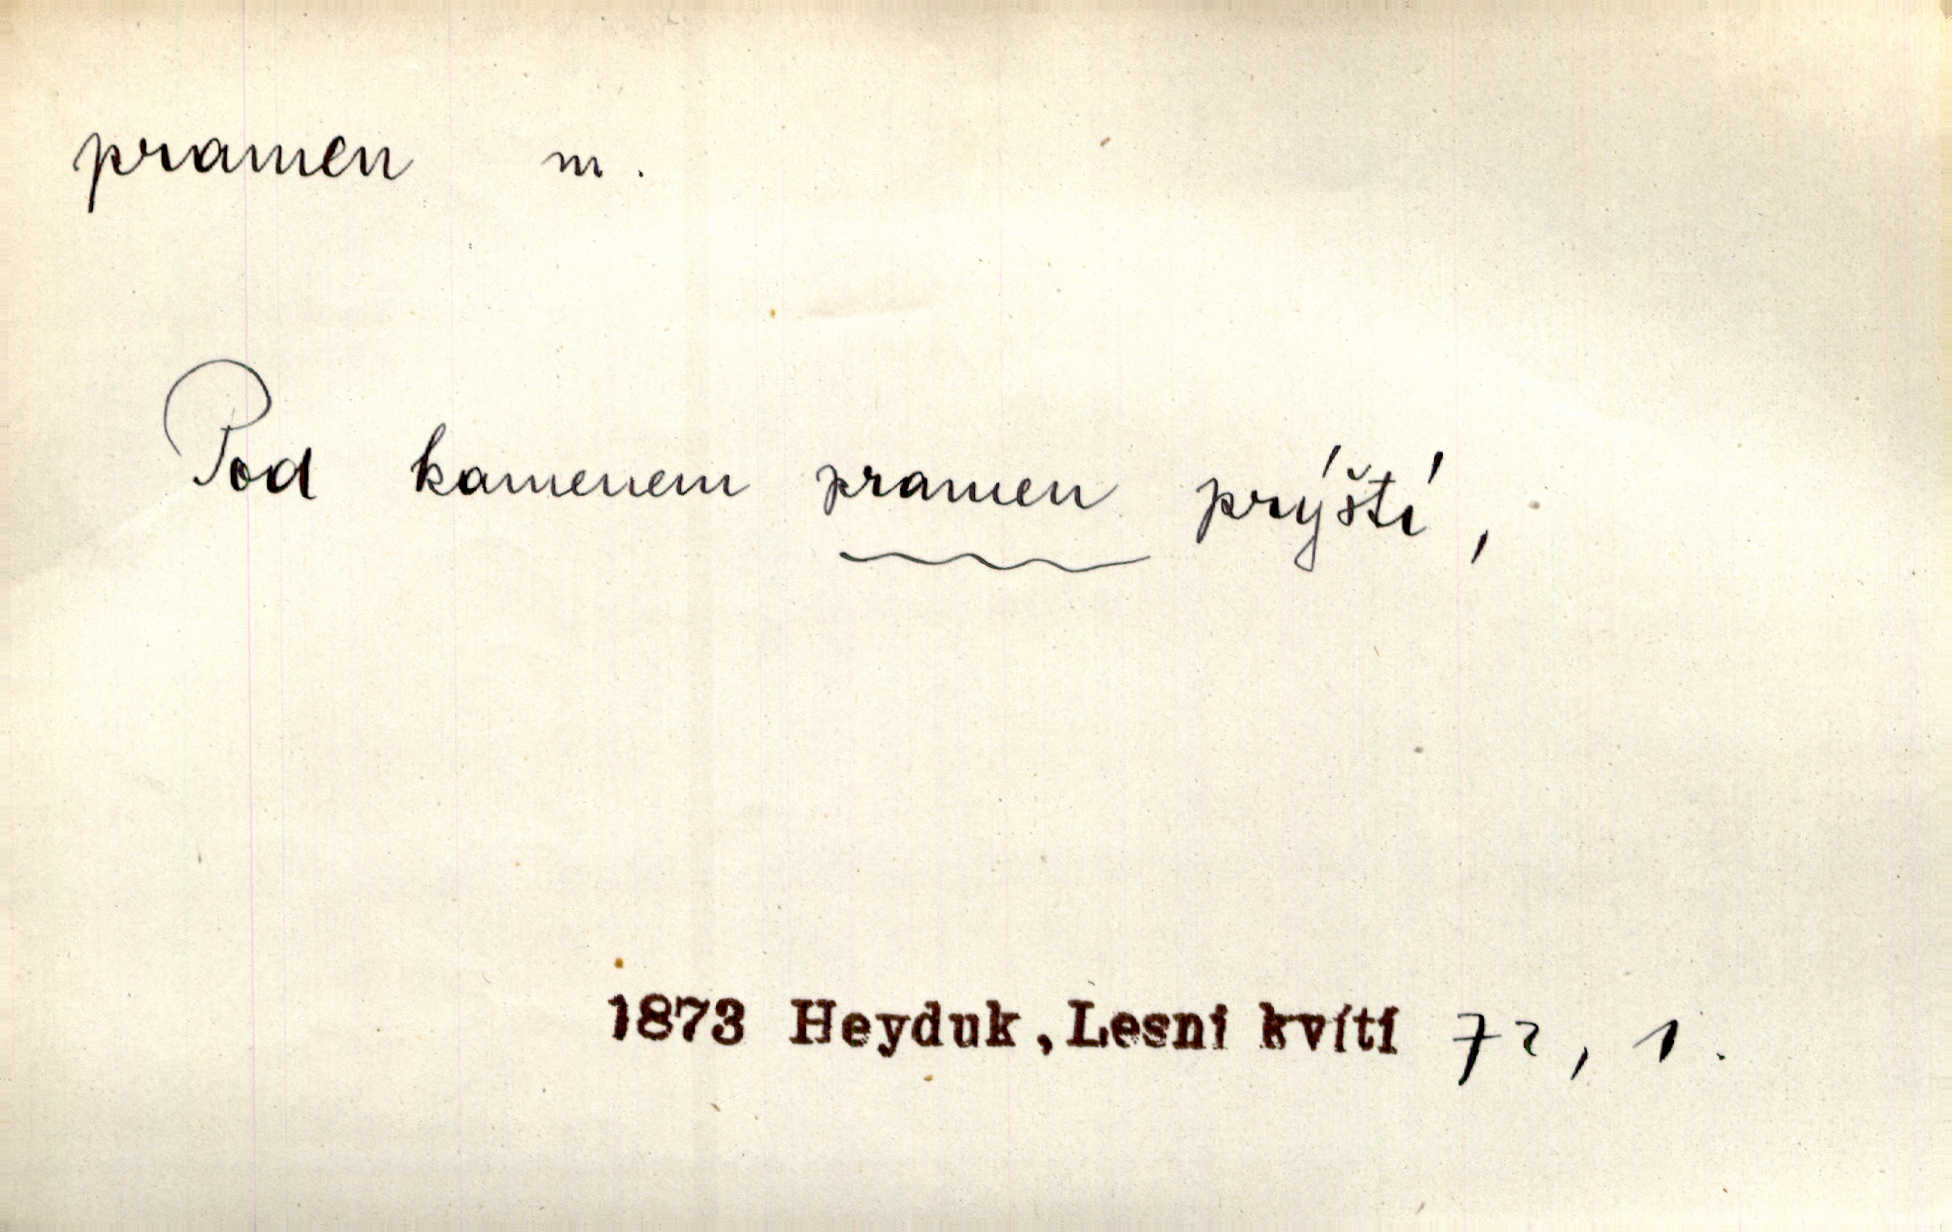 pramen m.
Pod kamenem pramen prýští,
1873 Heyduk, Lesní kvítí 72, 1.